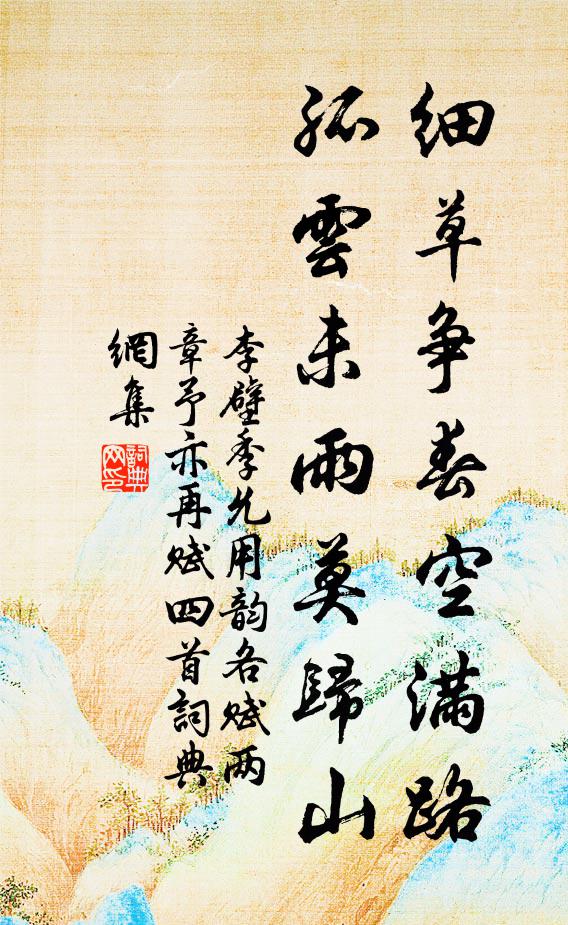 细草争春空满路
孤雲未雨莫歸山
李壁季允用韵各赋两
章予亦再赋四首詞典
網集
詞典
网印